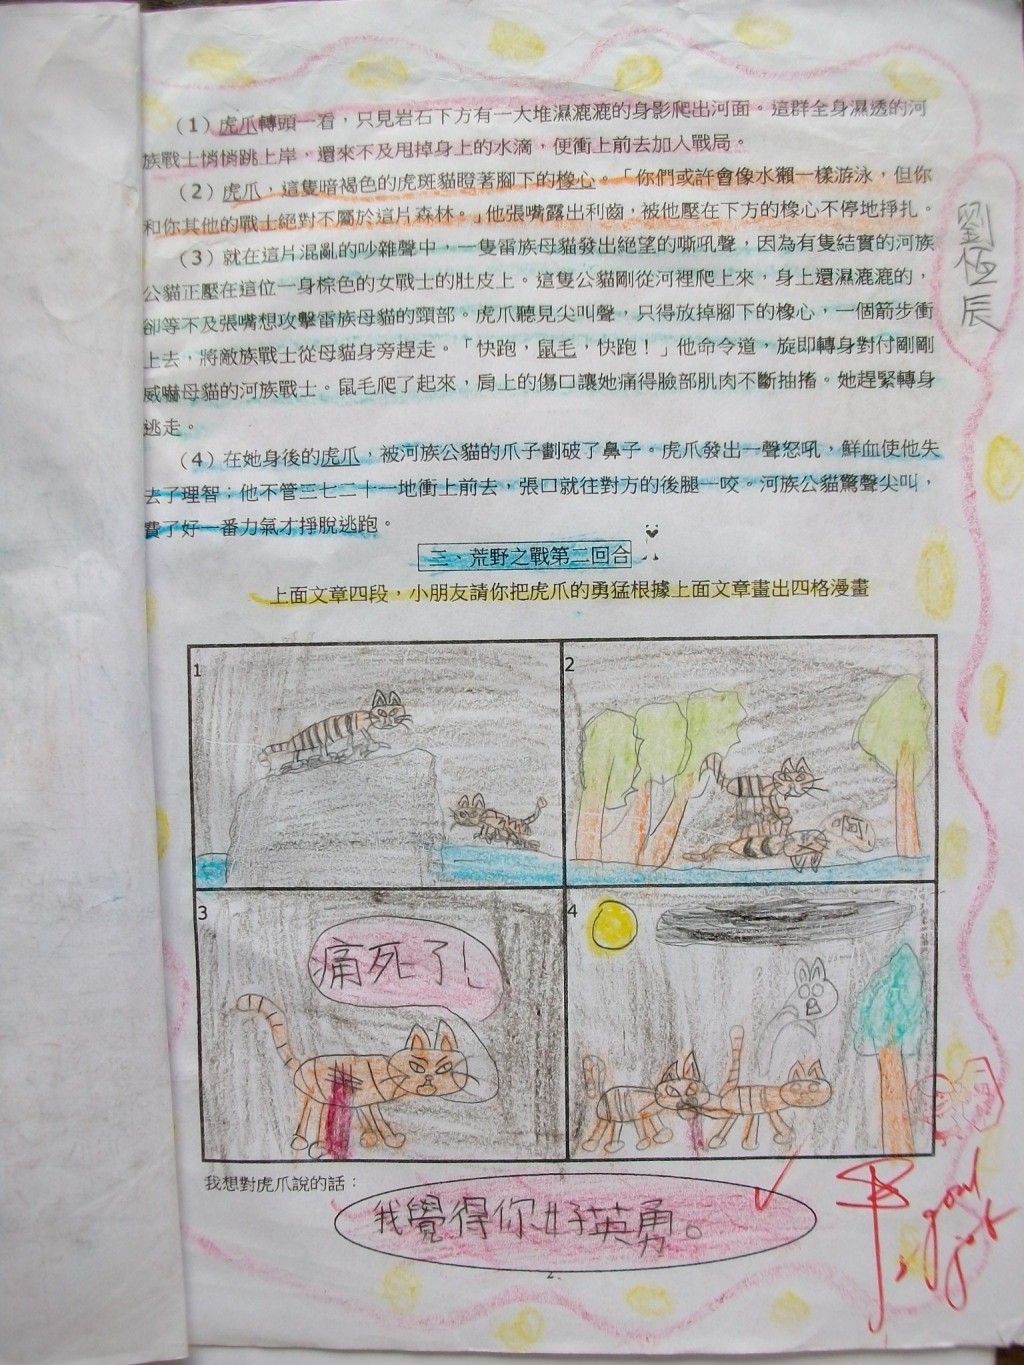 （1）虎爪轉頭一看，只見岩石下方有一大堆濕漉漉的身影爬出河面。這群全身濕透的河
族戰士悄悄跳上岸，還來不及甩掉身上的水滴，便衝上前去加入戰局。
（2）虎爪，這隻暗褐色的虎斑貓瞪著腳下的橡心。「你們或許會像水獺一樣游泳，但你
和你其他的戰士絕對不屬於這片森林。」他張嘴露出利齒，被他壓在下方的橡心不停地掙扎。
（3）就在這片混亂的吵雜聲中，一隻雷族母貓發出絕望的嘶吼聲，因為有隻結實的河族
公貓正壓在這位一身棕色的女戰士的肚皮上。這隻公貓剛從河裡爬上來，身上還濕漉漉的，
卻等不及張嘴想攻擊雷族母貓的頸部。虎爪聽見尖叫聲，只得放掉腳下的橡心，一個箭步衝
上去，將敵族戰士從母貓身旁趕走。「快跑，鼠毛，快跑！」他命令道，旋即轉身對付剛剛
威嚇母貓的河族戰士。鼠毛爬了起來，肩上的傷口讓她痛得臉部肌肉不斷抽搐。她趕緊轉身
逃走。
（4）在她身後的虎爪，被河族公貓的爪子劃破了鼻子。虎爪發出一聲怒吼，鮮血使他失
去了理智；他不管三七二十一地衝上前去，張口就往對方的後腿一咬。河族公貓驚聲尖叫，
費了好一番力氣才掙脫逃跑。
劉恆辰
三、荒野之戰第二回合
上面文章四段，小朋友請你把虎爪的勇猛根據上面文章畫出四格漫畫
1
2
啊!
3
痛死了!
4
我想對虎爪說的話：
我覺得你好英勇。
good
job
2